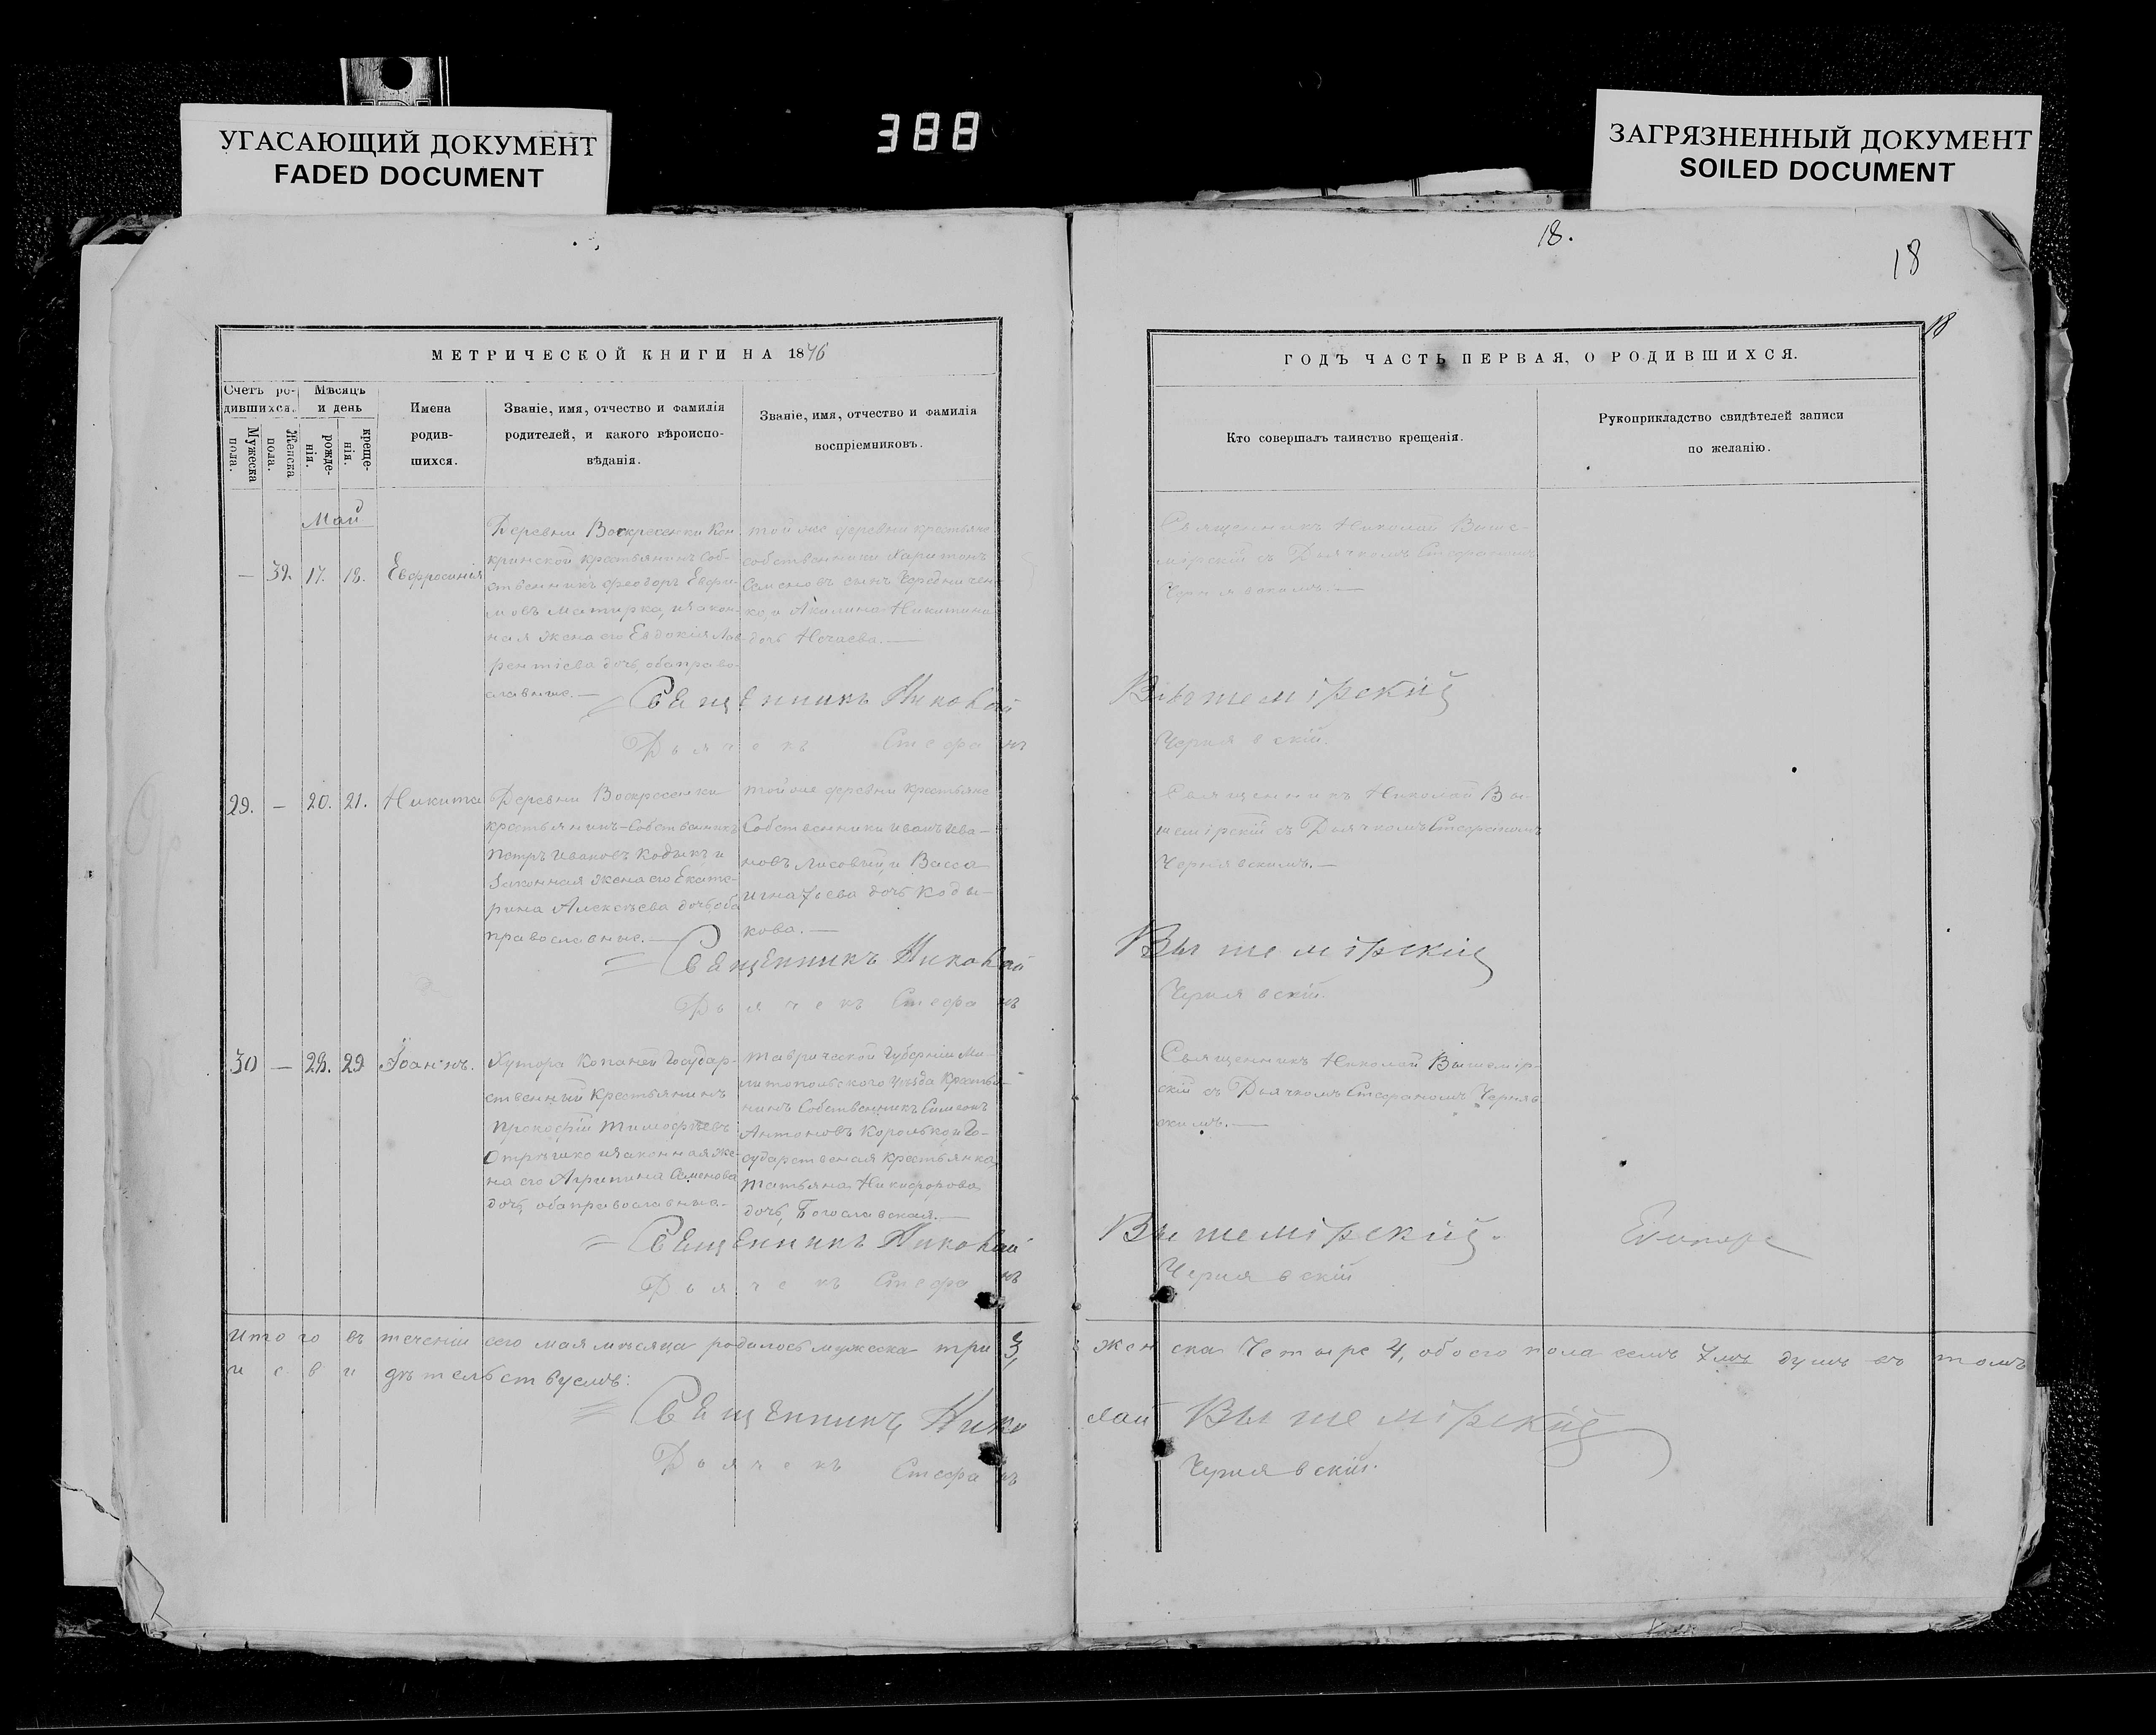 УГАСАЮЩИЙ ДОКУМЕНТ
FADED DOCUMENT
388
ЗАГРЯЗНЕННЫЙ ДОКУМЕНТ
SOILED DOCUMENT
18.
18
18
МЕТРИЧЕСКОЙ КНИГИ НА 1876
Счетъ ро-
дившихся.
Мужеска
пола.
Женска
пола.
Мѣсяцъ
и день
рожде-
нія.
креще-
нія.
Имена
родив-
шихся.
Званіе, имя, отчество и фамилія
родителей, и какого вѣроиспо-
вѣданія.
Званіе, имя, отчество и фамилія
воспріемниковъ.
ГОДЪ ЧАСТЬ ПЕРВАЯ, О РОДИВШИХСЯ.
Кто совершалъ таинство крещенія.
Рукоприкладство свидѣтелей записи
по желанію.
Май
— 32. 17. 18. Евфросинія
Деревни Воскресенки Кон-
кринской крестьянинъ соб-
ственникъ Феодоръ Ефи-
мовъ и закон-
ная жена его Евдокія Лав-
рентіева дочь, оба право-
славные. —
той же деревни крестьяне
собственники Харитонъ
Семеновъ сынъ Чередничен-
ко, и Акилина Никитина
дочь Нечаева. —
Священникъ Николай Выше-
мірскій съ Дьячкомъ Стефаномъ
Чернявскимъ. —
Священникъ Николай Вышемірскій
Дьячекъ Стефанъ Чернявскій.
29. — 20. 21. Никита
Деревни Воскресенки
крестьянинъ-собственникъ
Петръ Ивановъ Кодыкъ и
законная жена его Екате-
рина Алексѣева дочь, оба
православные. —
той же деревни крестьяне
Собственники Иванъ Ива-
новъ Лисовый, и Васса
Игнатьева дочь Коды-
кова. —
Священникъ Николай Вы-
шемірскій съ Дьячкомъ Стефаномъ
Чернявскимъ. —
Священникъ Николай Вышемірскій
Дьячекъ Стефанъ Чернявскій.
30 — 28. 29 Іоаннъ.
Хутора Копаней Государ-
ственный Крестьянинъ
Прокофій Тимофѣевъ
и законная же-
на его Агрипина Семенова
дочь, оба православные. —
Таврической Губерніи Ме-
литопольского уѣзда Крестья-
нинъ Собственникъ Симеонъ
Антоновъ Королько, и Го-
сударственая Крестьянка
Татьяна Никифорова
дочь, Богославская. —
Священникъ Николай Вышемір-
скій съ Дьячкомъ Стефаномъ Черняв
скимъ. —
Священникъ Николай Вышемірскій.
Дьячекъ Стефанъ Чернявскій
Итого въ теченіи сего мая мѣсяца родилось мужеска три 3, женска Четыре 4, обоего пола семь 7мь душъ въ томъ
и свидѣтельствуемъ:
Священникъ Николай Вышемірскій
Дьячекъ Стефанъ Чернявскій.